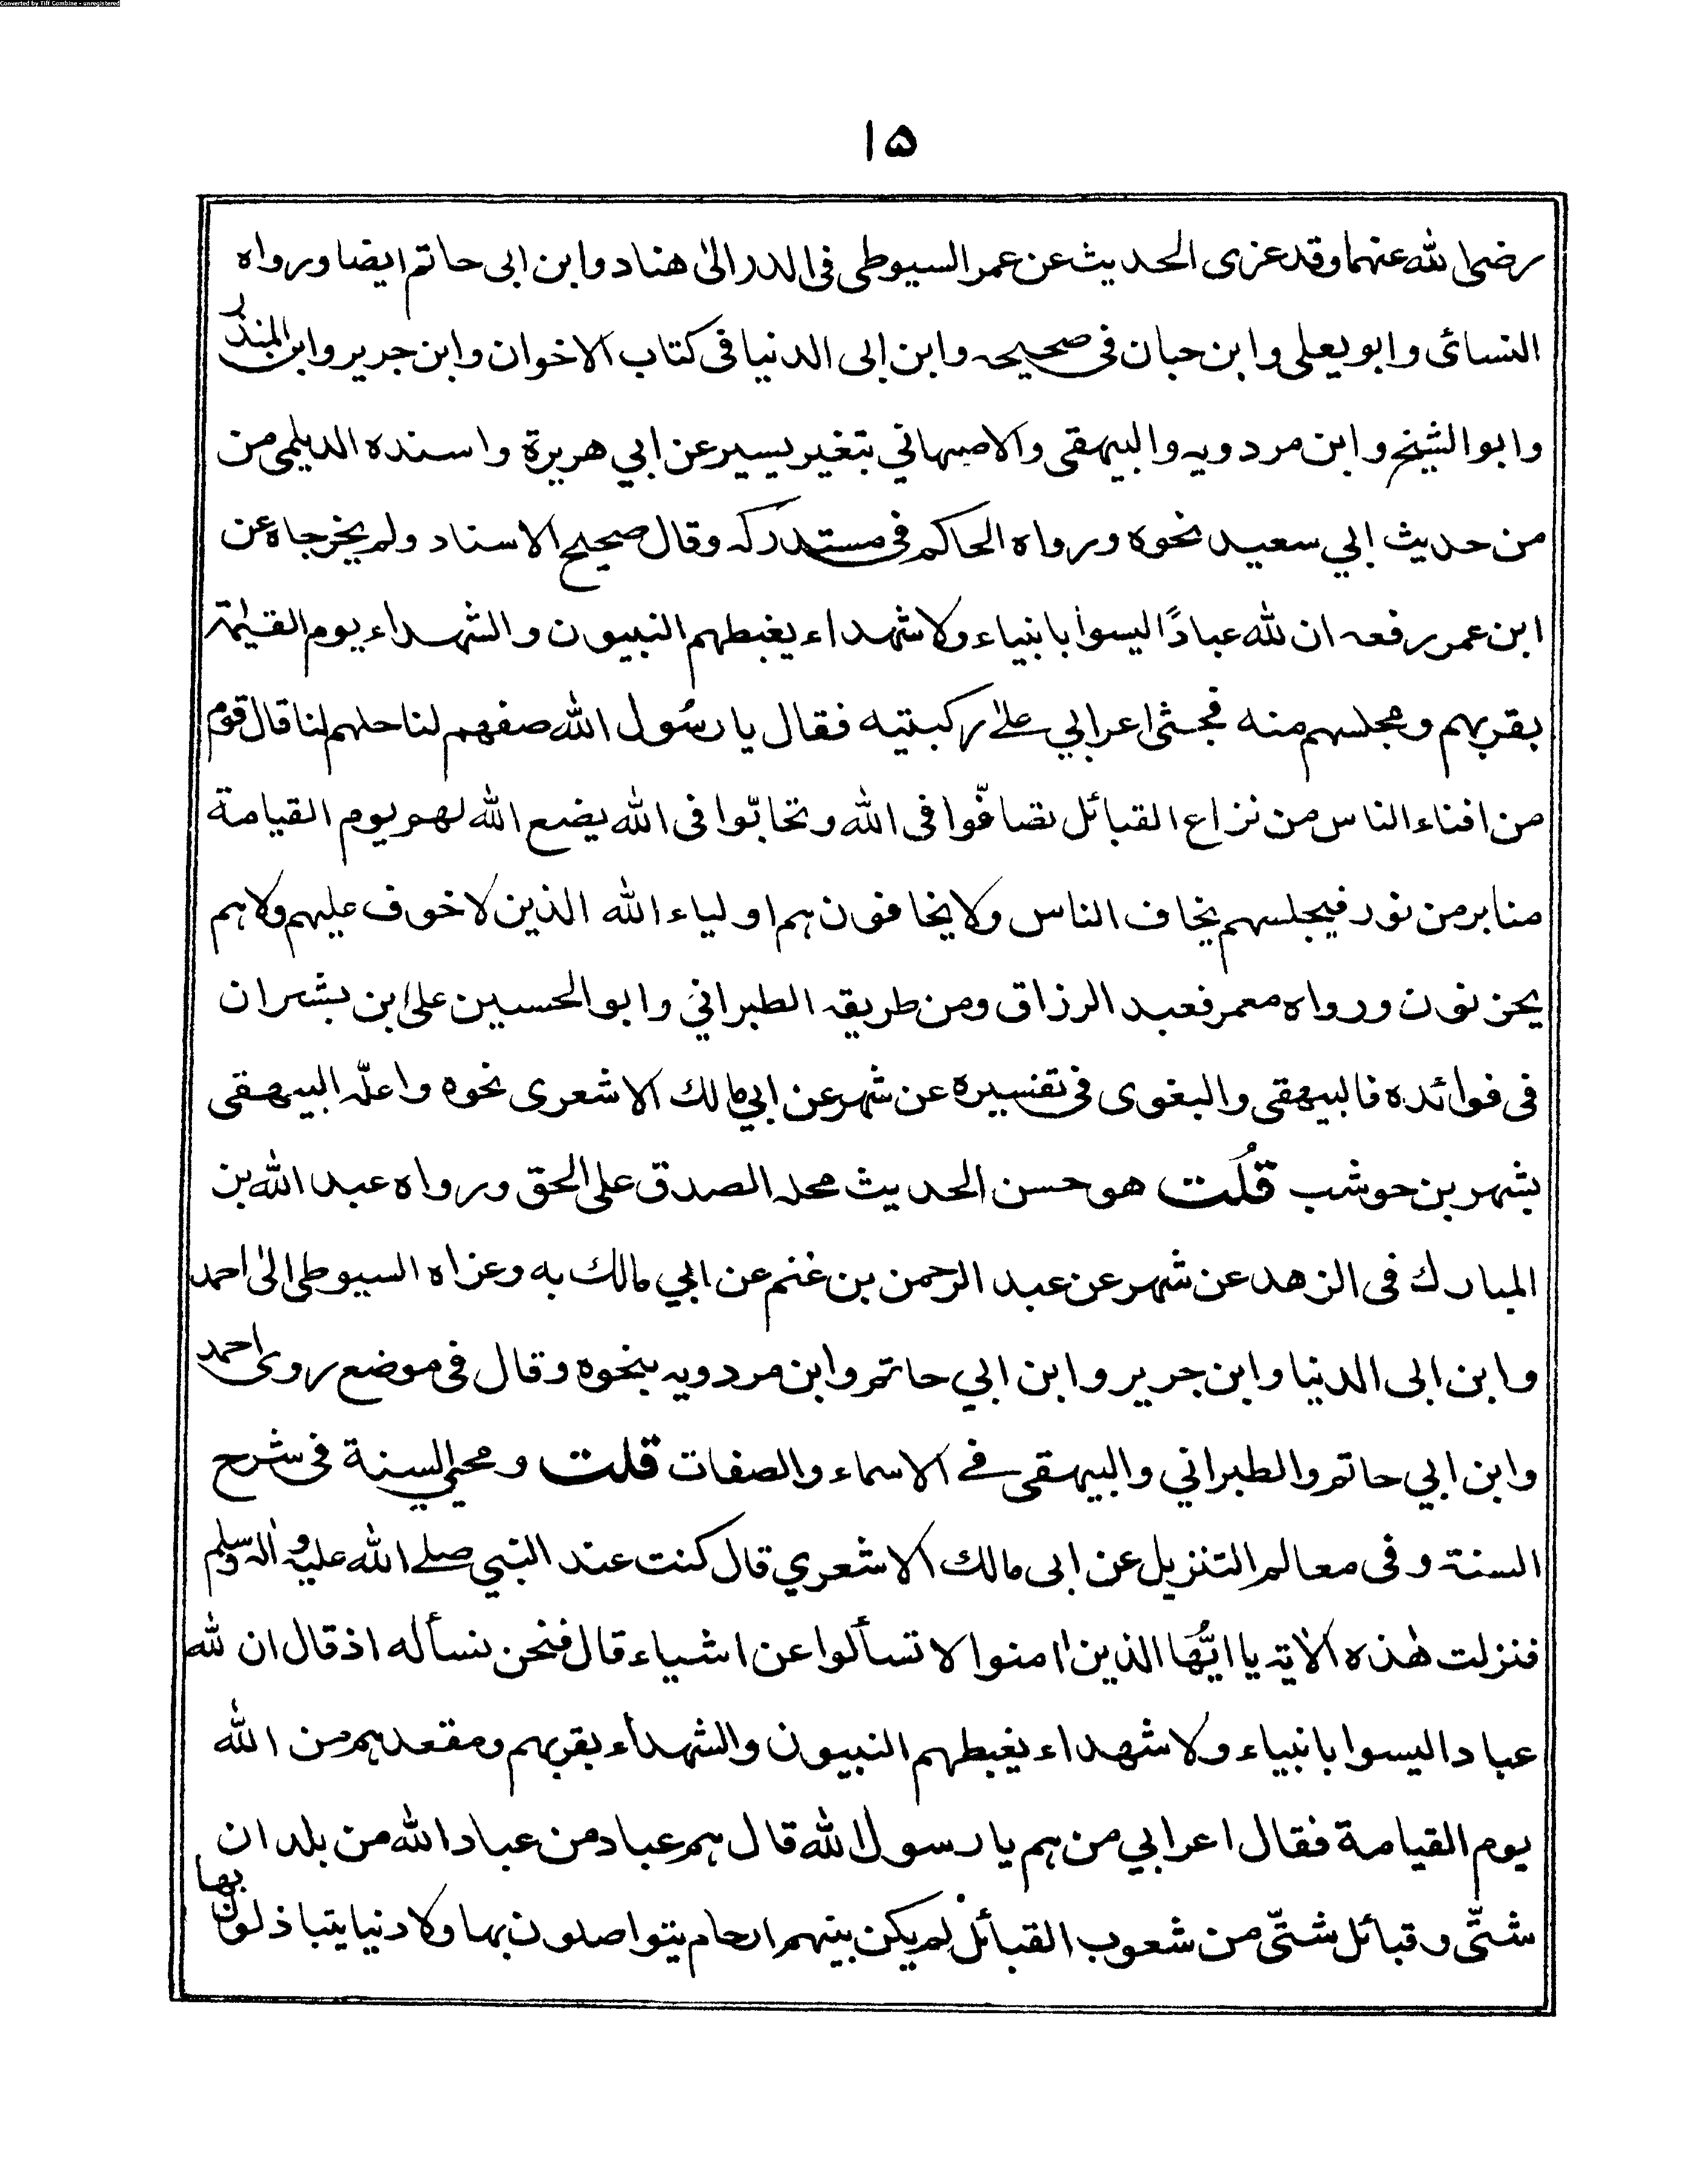 Converted by Tiff Combine - unregistered
١٥
رضی الله عنهما وقد عزی الحدیث عن عمر السیوطی فی الدر الیٰ هناد وابن ابی حاتم ایضا ورواه
النسائی وابو یعلی وابن حبان فی صحیحہ وابن ابی الدنیا فی کتاب الاخوان وابن جریر وابن المنذر
وابو الشیخ وابن مردویہ والبیہقی والاصبہاني بتغیر یسیر عن ابي هریرة واسنده الدیلمی من
من حدیث ابي سعید نحوه ورواه الحاکم فی مستدرکہ وقال صحیح الاسناد ولم یخرجاه عن
ابن عمر رفعہ ان لله عبادًا لیسوا بانبیاء ولا شہداء یغبطہم النبیون والشہداء یوم القیٰمة
بقربہم ومجلسہم منه فجثی اعرابي علیٰ رکبتیه فقال یا رسُول الله صفہم لنا حلہم لنا قال قوم
من افناء الناس من نزاع القبائل تصافّوا فی الله وتحابّوا فی الله یضع الله لهم یوم القیامة
منابر من نور فیجلسہم یخاف الناس ولا یخافون ہم اولیاء الله الذین لا خوف علیہم ولا ہم
یحزنون ورواه معمر فعبد الرزاق ومن طریقہ الطبراني وابو الحسین علی ابن بشران
فی فوائده فالبیهقی والبغوی فی تفسیره عن شہر عن ابي مالك الاشعری نحوه واعلّہ البیهقی
بشہر بن حوشب قُلت هو حسن الحدیث محلہ الصدق علی الحق ورواه عبد الله بن
المبارك فی الزهد عن شہر عن عبد الرحمن بن غنم عن ابي مالك به وعزاه السیوطی الیٰ احمد
وابن ابی الدنیا وابن جریر وابن ابي حاتم وابن مردویہ بنحوه وقال فی موضع رویٰ احمد
وابن ابي حاتم والطبراني والبیہقی فے الاسماء والصفات قلت ومحیي السنة فی شرح
السنة وفی معالم التنزیل عن ابی مالك الاشعري قال کنت عند النبي صلے الله علیہ واٰلہ وسلم
فنزلت هٰذه الاٰیة یا ایُّهَا الذین اٰمنوا لا تسألوا عن اشیاء قال فنحن نسأله اذ قال ان لله
عبادا لیسوا بانبیاء ولا شهداء یغبطہم النبیون والشہداء بقربہم ومقعدہم من الله
یوم القیامة فقال اعرابي من ہم یا رسول الله قال ہم عباد من عباد الله من بلدان
شتّٰی وقبائل شتّٰی من شعوب القبائل لم یکن بینہم ارحام یتواصلون بہا ولا دنیا یتباذلون بها